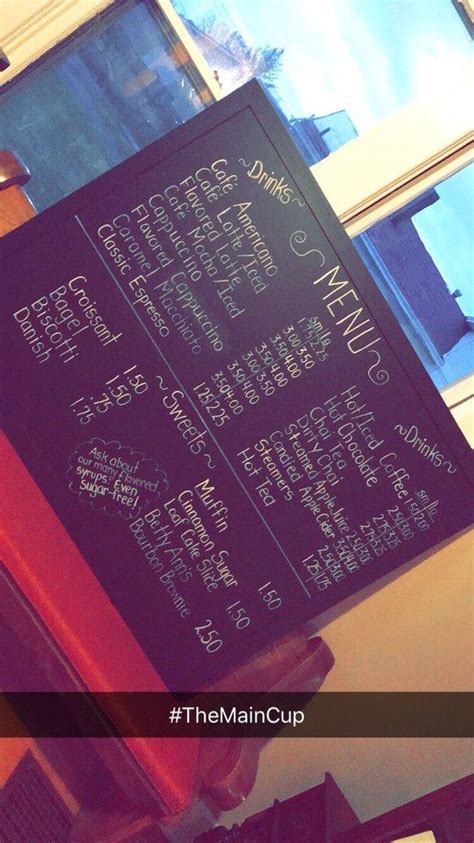 MENU
~Drinks~
sm/lg
Café Americano 1.75/2.25
Café Latte/Iced 3.00/3.50
Flavored Latte 3.50/4.00
Café Mocha/Iced 3.50/4.00
Cappuccino 3.00/3.50
Flavored Cappuccino 3.50/4.00
Caramel Macchiato
Classic Espresso 1.25/2.25
~Drinks~
sm/lg
Hot/Iced Coffee 1.50/2.00
Hot Chocolate 2.50/3.00
Chai Tea
Dirty Chai
Steamed Apple Juice
Candied Apple Cider
Steamers 2.50/3.00
Hot Tea 1.25/1.75
~Sweets~
Croissant 1.50
Bagel 1.50
Biscotti .75
Danish 1.75
Ask about
our many flavored
syrups! Even
Sugar-free!
Muffin 1.50
Cinnamon Sugar
Loaf Cake Slice 1.50
Betty Ann's
Bourbon Brownie 2.50
#TheMainCup